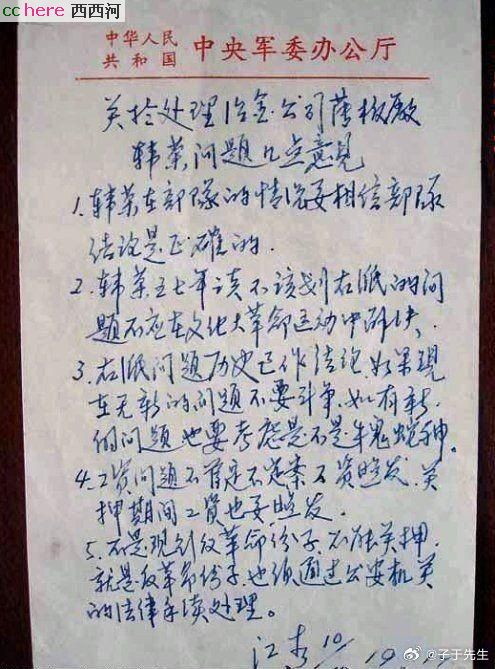 cchere 西西河
中华人民
共和国 中央军委办公厅
关於处理冶金公司薄板厰
韩荣问题几点意見
1. 韩荣在部隊的情况要相信部队
结论是正確的.
2. 韩荣五七年该不该划右派的问
题不应在文化大革命运动中解决.
3. 右派问题历史已作结论.如果現
在无新的问题不要斗争.如有新
的问题也要考虑是不是牛鬼蛇神.
4. 工资问题不肯定不定案工资照发.关
押期间工资也要照发.
5. 不是现刬反革命份子.不能关押.
就是反革命份子也须通过公安机关
的法律手续处理。
江青 10/
@子于先生